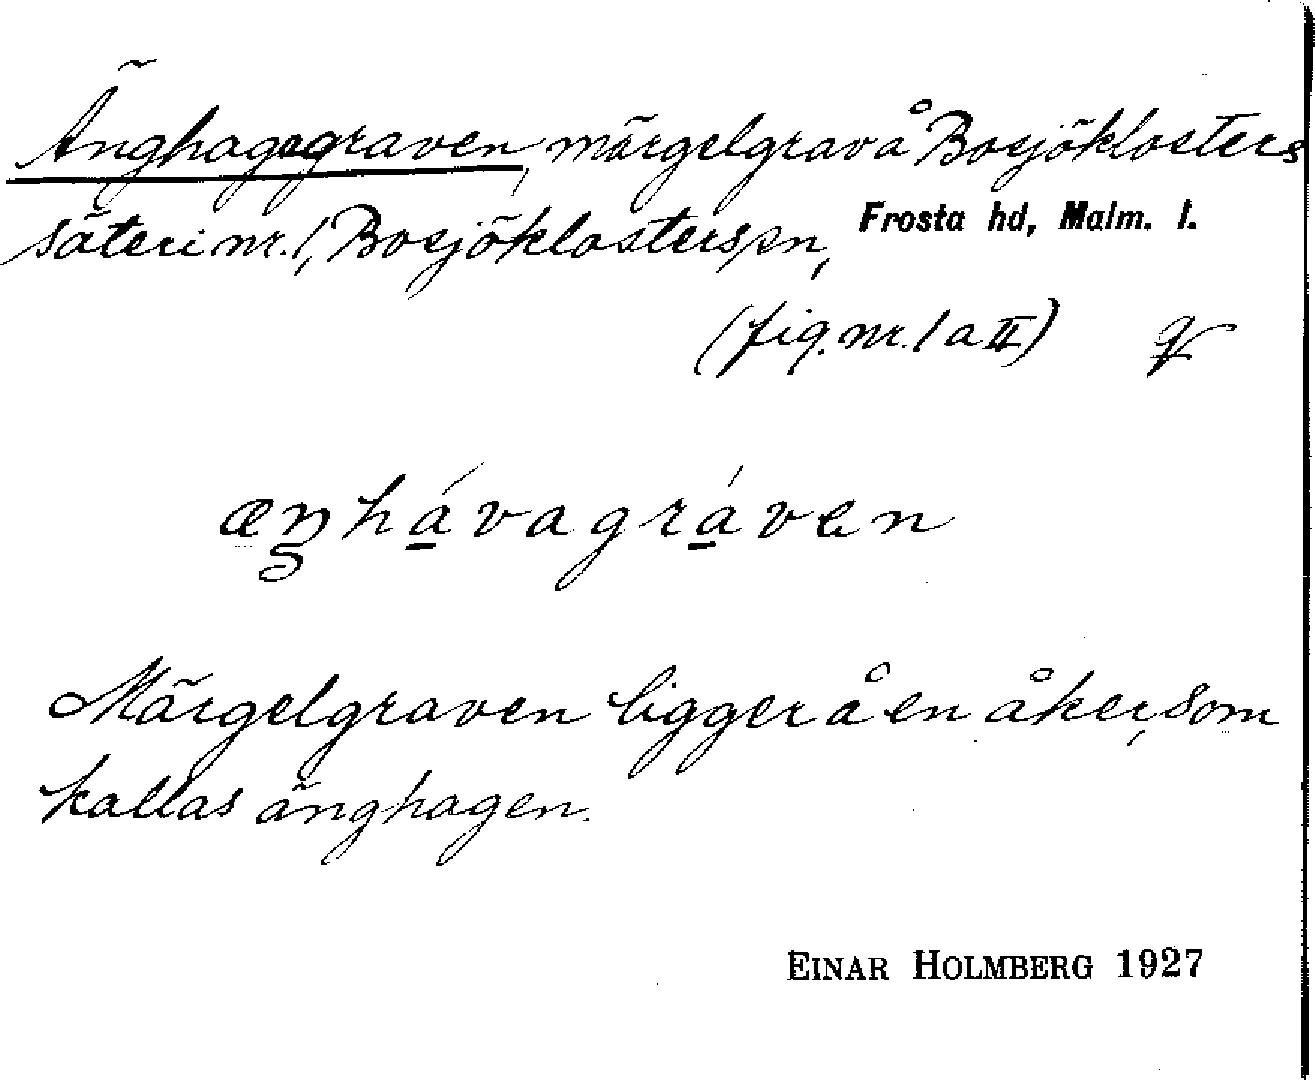 Änghagagraven, märgelgrav å Bosjöklosters
säteri nr. 1, Bosjöklosters sn, Frosta hd, Malm. l.
(fig. nr. 1 a II)
æŋhávagráven
Märgelgraven ligger å en åker, som
kallas änghagen.
EINAR HOLMBERG 1927